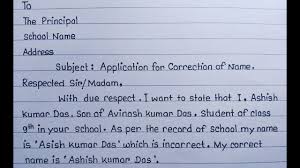 To
The Principal
School Name
Address
Subject: Application for Correction of Name.
Respected Sir/Madam,
With due respect. I want to state that I, Ashish
Kumar Das. Son of Avinash Kumar Das. Student of class
9th in your school. As per the record of school my name
is 'Asish Kumar Das' which is incorrect. My correct
name is 'Ashish Kumar Das'.